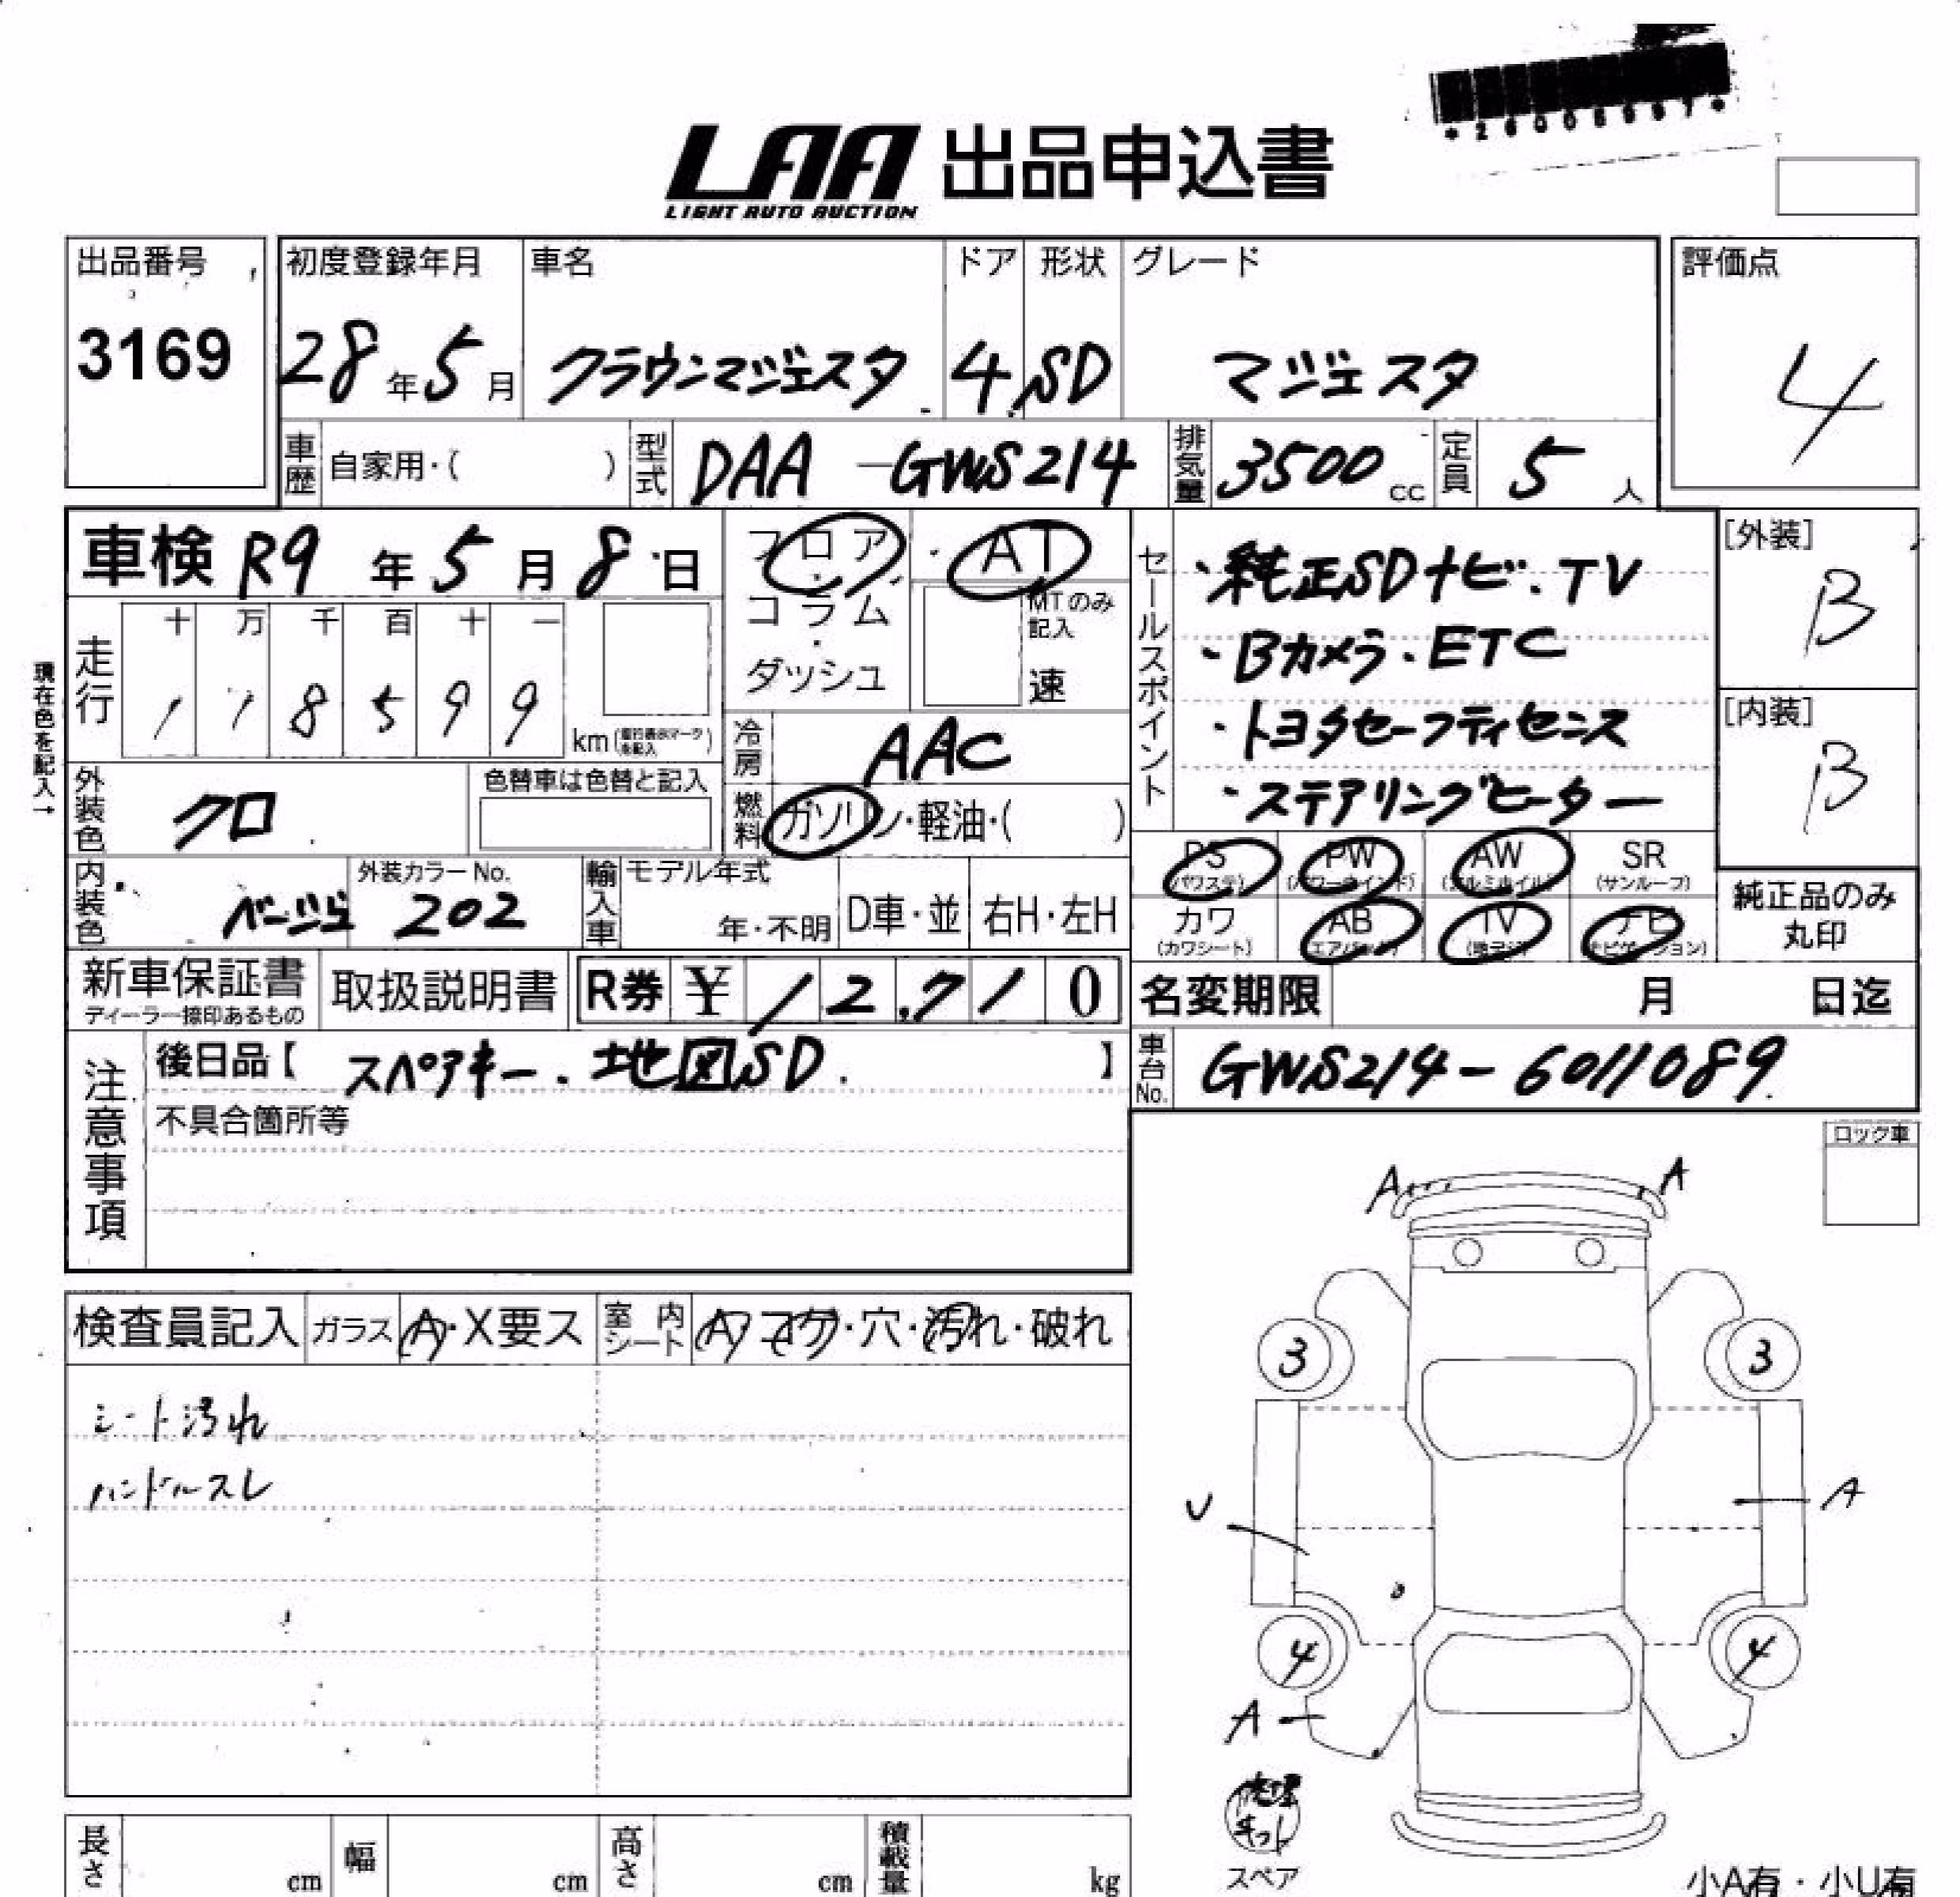 LAA 出品申込書
LIGHT AUTO AUCTION
出品番号 初度登録年月 車名 ドア 形状 グレード 評価点
3169 28年5月 クラウンマジェスタ 4 SD マジェスタ 4
車歴 自家用・( ) 型式 DAA-GWS214 排気量 3500cc 定員 5人
車検 R9年5月8日 フロア・コラム・ダッシュ AT
MTのみ記入 速
セールスポイント
・純正SDナビ・TV
・Bカメラ・ETC
・トヨタセーフティセンス
・ステアリングヒーター
[外装] B
[内装] B
現在色を記入→
走行 十 万 千 百 十 一
1 1 8 5 9 9 km
冷房 AAC
外装色 クロ 色替車は色替と記入
燃料 ガソリン・軽油・( )
PS (パワステ) PW (パワーウインド) AW (アルミホイル) SR (サンルーフ)
内装色 ベージュ 外装カラーNo. 202 輸入車 モデル年式 年・不明 D車・並 右H・左H
カワ (カワシート) AB (エアバッグ) TV (地デジ) ナビ (ナビゲーション)
純正品のみ丸印
新車保証書 ディーラー捺印あるもの 取扱説明書 R券 ¥12,710
名変期限 月 日迄
注意事項 後日品【スペアキー.地図SD.】
車台No. GWS214-6011089
不具合箇所等
ロック車
A A
検査員記入 ガラス A・X要ス 室内シート A コゲ・穴・汚れ・破れ
3 3
シート汚れ
ハンドルスレ
U A
4 4
A
修理キット
スペア
長さ cm 幅 cm 高さ cm 積載量 kg
小A有・小U有